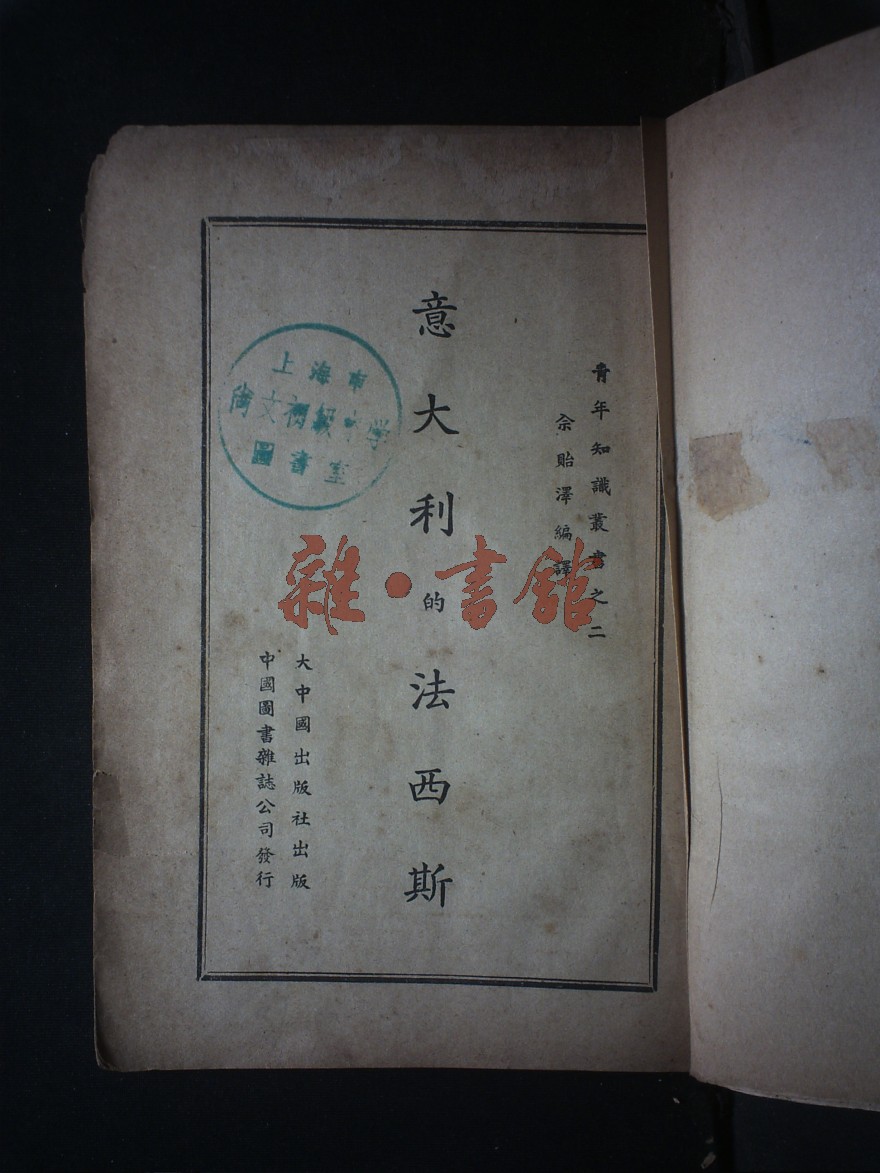 青年知識叢書之二
余貽澤編譯
意大利的法西斯
大中國出版社出版
中國圖書雜誌公司發行
上海市
尚文初級中学
圖書室
雜·書館